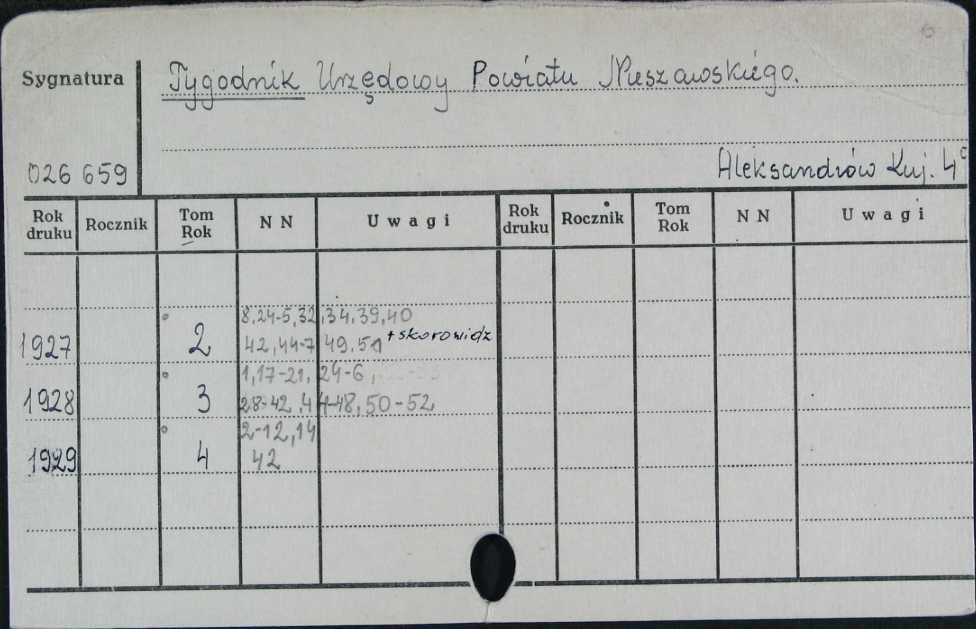 6
Sygnatura
Tygodnik Urzędowy Powiatu Nieszawskiego.
026 659
Aleksandrów Kuj. 4°
Rok druku Rocznik Tom Rok NN Uwagi Rok druku Rocznik Tom Rok NN Uwagi
8,24-5,32,34,39,40
1927 2 42,44-7 49,51 +skorowidz
1,17-21, 24-6,
1928 3 28-42,44-48,50-52
2-12,14
1929 4 42